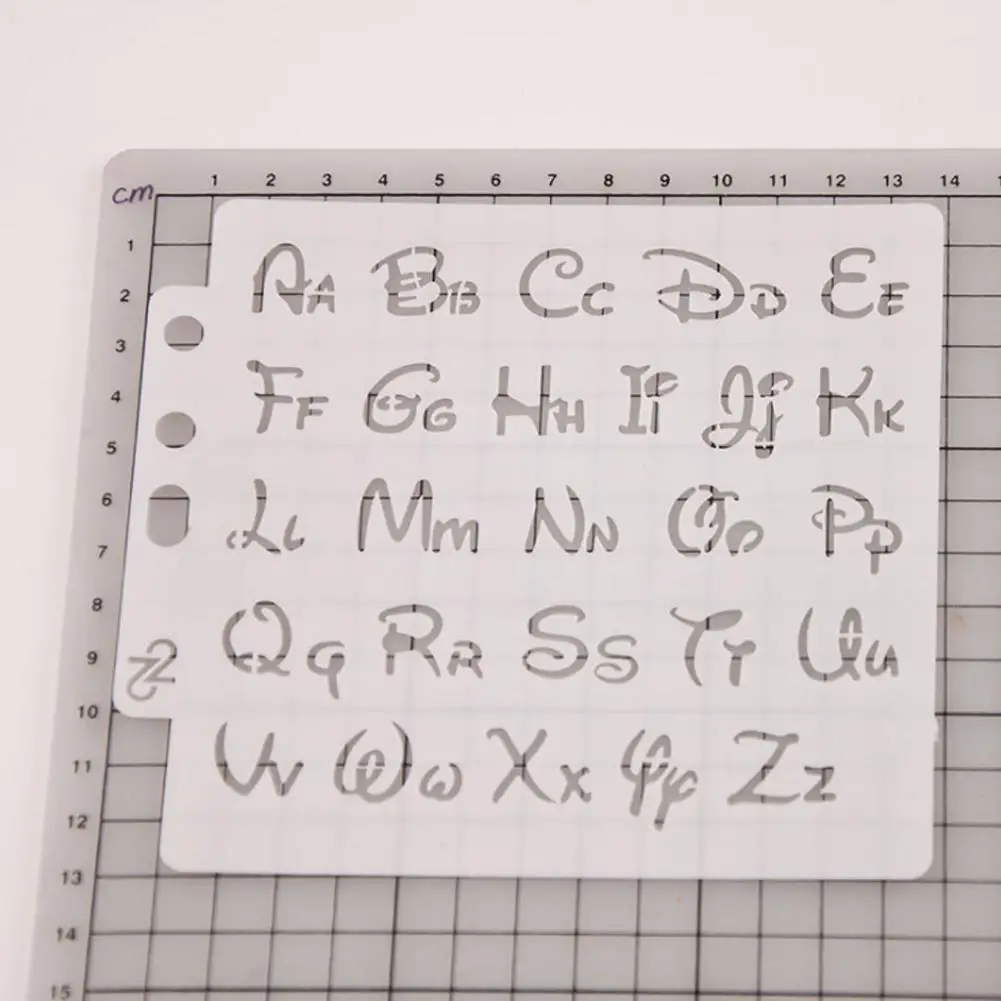 cm 1 2 3 4 5 6 7 8 9 10 11 12 13 14
1
2
3
4
5
6
7
8
9
10
11
12
13
14
15
Aa Bb Cc Dd Ee
Ff Gg Hh Ii Jj Kk
Ll Mm Nn Oo Pp
Qq Rr Ss Tt Uu
Vv Ww Xx Yy Zz